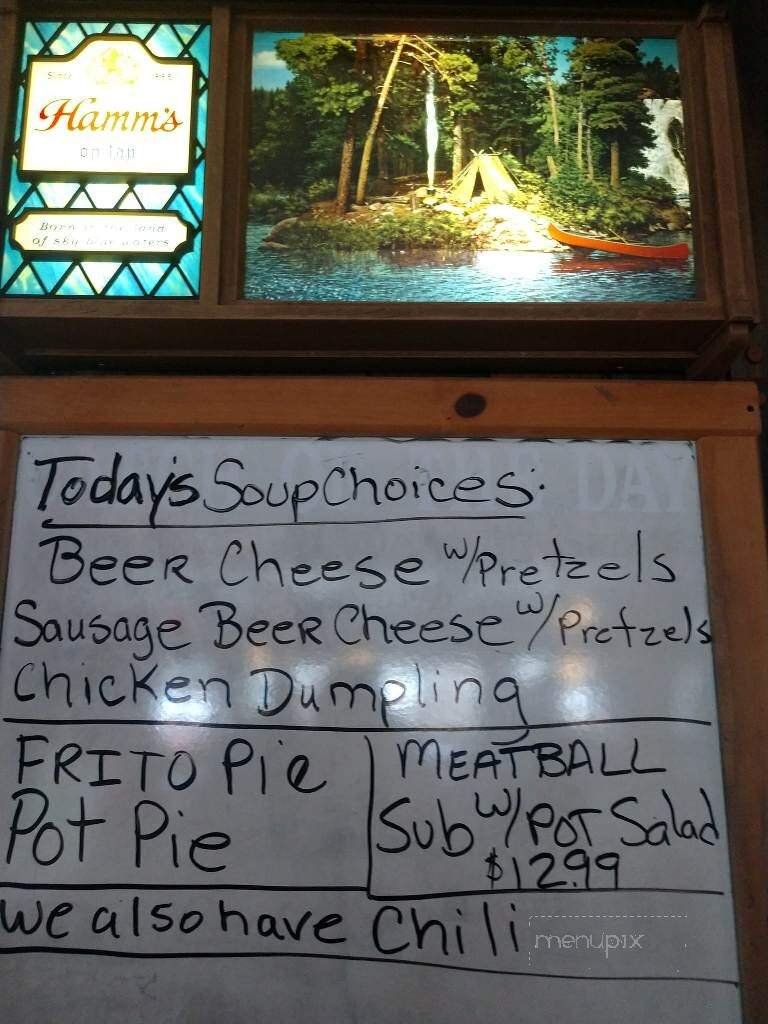 Since 1865
Hamm's
on tap
Born in the land
of sky blue waters
DAY
Today's Soup Choices:
Beer Cheese w/Pretzels
Sausage Beer Cheese w/Pretzels
Chicken Dumpling
FRITO Pie
Pot Pie
MEATBALL
Sub w/POT Salad
$12.99
We also have Chili
menupix